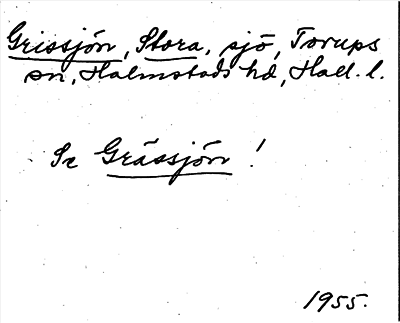 Grissjön, Stora, sjö, Torups
sn, Halmstads hd, Hall. l.
Se Gråssjön!
1955.